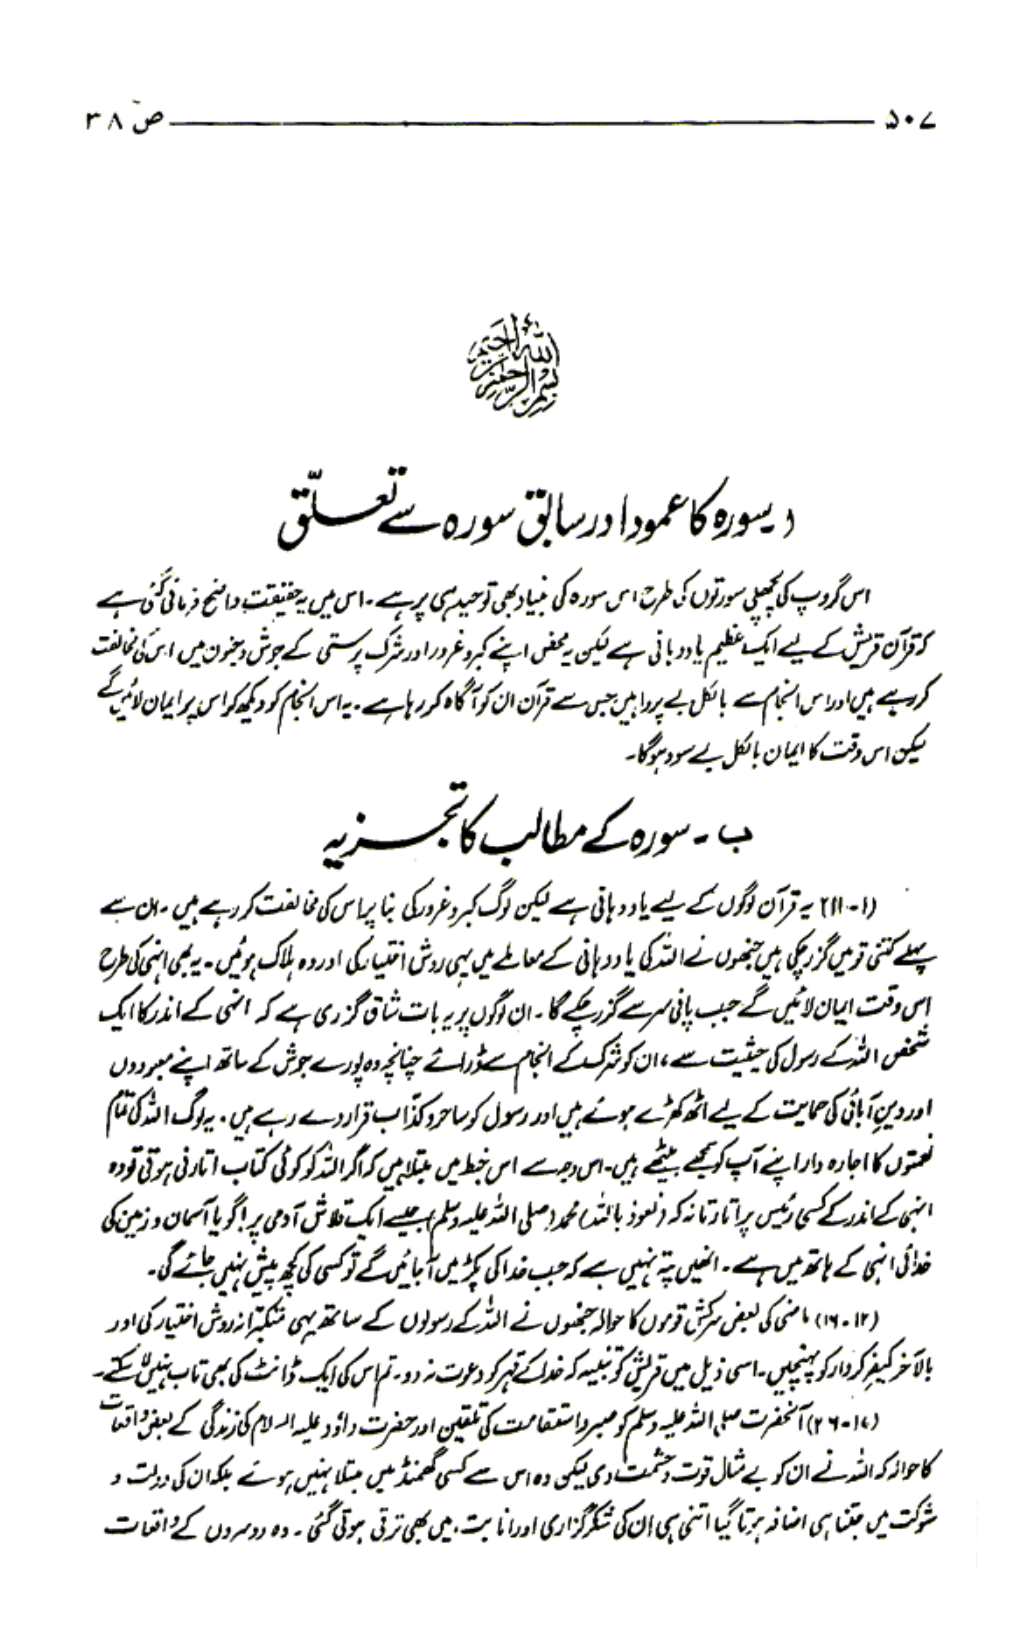 ۵۰۷ ص ۳۸
بسم الله الرحمن الرحيم
ا۔ سورہ کا عمود اور سابق سورہ سے تعلّق
اس گروپ کی پچھلی سورتوں کی طرح اس سورہ کی بنیاد بھی توحید ہی پر ہے۔ اس میں یہ حقیقت واضح فرمائی گئی ہے
کہ قرآن قریش کے لیے ایک عظیم یاددہانی ہے لیکن یہ محض اپنے کبر و غرور اور شرک پرستی کے جوش و جنون میں اس کی مخالفت
کر رہے ہیں اور اس انجام سے بالکل بے پروا ہیں جس سے قرآن ان کو آگاہ کر رہا ہے۔ یہ اس انجام کو دیکھ کر اس پر ایمان لائیں گے
لیکن اس وقت کا ایمان بالکل بے سود ہوگا۔
ب۔ سورہ کے مطالب کا تجزیہ
(۱-۱۱) یہ قرآن لوگوں کے لیے یاددہانی ہے لیکن لوگ کبر و غرور کی بنا پر اس کی مخالفت کر رہے ہیں۔ ان سے
پہلے کتنی قومیں گزر چکی ہیں جنھوں نے اللہ کی یاددہانی کے معاملے میں یہی روش اختیار کی اور وہ ہلاک ہوئیں۔ یہ بھی انہی کی طرح
اس وقت ایمان لائیں گے جب پانی سر سے گزر چکے گا۔ ان لوگوں پر یہ بات شاق گزری ہے کہ انہی کے اندر کا ایک
شخص اللہ کے رسول کی حیثیت سے، ان کو شرک کے انجام سے ڈرائے چنانچہ وہ پورے جوش کے ساتھ اپنے معبودوں
اور دینِ آبائی کی حمایت کے لیے اٹھ کھڑے ہوئے ہیں اور رسول کو ساحر و کذّاب قرار دے رہے ہیں۔ یہ لوگ اللہ کی تمام
نعمتوں کا اجارہ دار اپنے آپ کو سمجھے بیٹھے ہیں۔ اس وجہ سے اس خبط میں مبتلا ہیں کہ اگر اللہ کو کوئی کتاب اتارنی ہوتی تو وہ
انہی کے اندر کے کسی رئیس پر اتارتا نہ کہ (نعوذ باللہ) محمد (صلی اللہ علیہ وسلم) جیسے ایک قلاش آدمی پر! گویا آسمان و زمین کی
خدائی انہی کے ہاتھ میں ہے۔ انھیں پتہ نہیں ہے کہ جب خدا کی پکڑ میں آ جائیں گے تو کسی کی کچھ پیش نہیں جائے گی۔
(۱۲-۱۶) ماضی کی بعض سرکش قوموں کا حوالہ جنھوں نے اللہ کے رسولوں کے ساتھ یہی متکبّرانہ روش اختیار کی اور
بالآخر کیفرِ کردار کو پہنچیں۔ اسی ذیل میں قریش کو تنبیہ کہ خدا کے قہر کو دعوت نہ دو۔ تم اس کی ایک ڈانٹ کی بھی تاب نہیں لا سکتے۔
(۱۷-۲۶) آنحضرت صلی اللہ علیہ وسلم کو صبر و استقامت کی تلقین اور حضرت داؤد علیہ السلام کی زندگی کے بعض واقعات
کا حوالہ کہ اللہ نے ان کو بے مثال قوت و حشمت دی لیکن وہ اس سے کسی گھمنڈ میں مبتلا نہیں ہوئے بلکہ ان کی دولت و
شوکت میں جتنا ہی اضافہ ہوتا گیا اتنی ہی ان کی شکرگزاری اور انابت میں بھی ترقی ہوتی گئی۔ وہ دوسروں کے واقعات